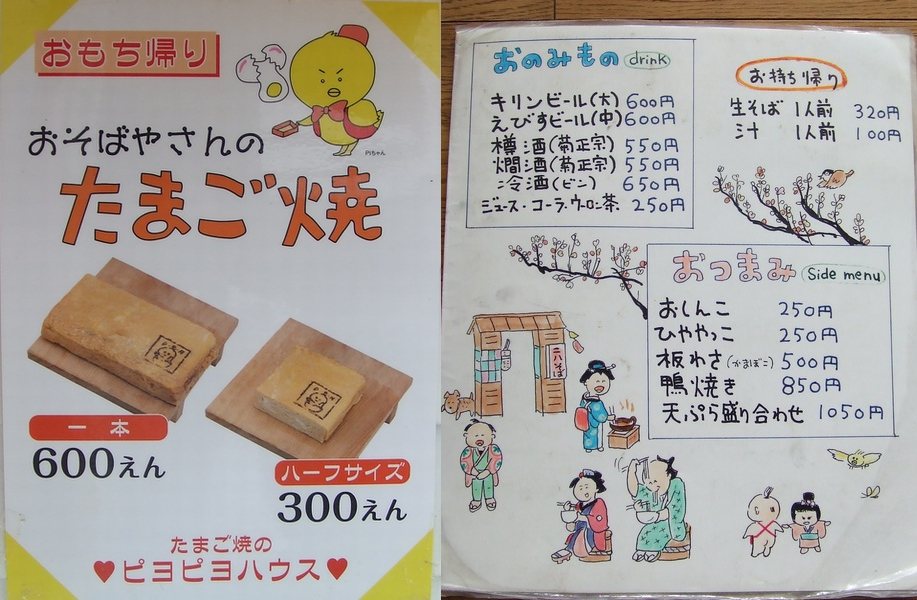 おもち帰り
PIちゃん
おそばやさんの
たまご焼
一本
600えん
ハーフサイズ
300えん
たまご焼の
♥ピヨピヨハウス♥
おのみもの drink
キリンビール(大) 600円
えびすビール(中) 600円
樽酒(菊正宗) 550円
燗酒(菊正宗) 550円
冷酒(ビン) 650円
ジュース・コーラ・ウーロン茶 250円
お持ち帰り
生そば 1人前 320円
汁 1人前 100円
おつまみ Side menu
おしんこ 250円
ひややっこ 250円
板わさ(かまぼこ) 500円
鴨焼き 850円
天ぷら盛り合わせ 1050円
二八そば